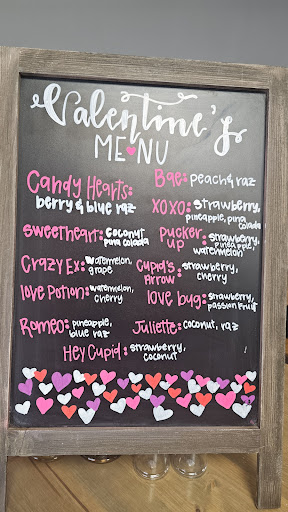 Valentine's
MENU
Candy Hearts:
berry & blue raz
Bae: peach & raz
XOXO: strawberry,
pineapple, pina
colada
Sweetheart: coconut
pina colada
Pucker
up: strawberry,
pineapple,
watermelon
Crazy Ex: watermelon,
grape
Cupid's
Arrow: strawberry,
cherry
love Potion: watermelon,
cherry
love bug: strawberry,
passion fruit
Romeo: pineapple,
blue raz
Juliette: coconut, raz
Hey Cupid: strawberry,
coconut